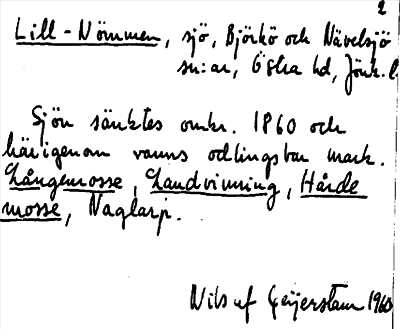 2
Lill-Nömmen, sjö, Björkö och Nävelsjö
sn:ar, Östra hd, Jönk. l.
Sjön sänktes omkr. 1860 och
härigenom vanns odlingsbar mark.
Långemosse, Landvinning, Hårde
mosse, Naglarp.
Nils af Geijerstam 1960